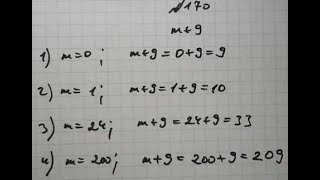 №170
m+9
1) m=0; m+9=0+9=9
2) m=1; m+9=1+9=10
3) m=24; m+9=24+9=33
4) m=200; m+9=200+9=209